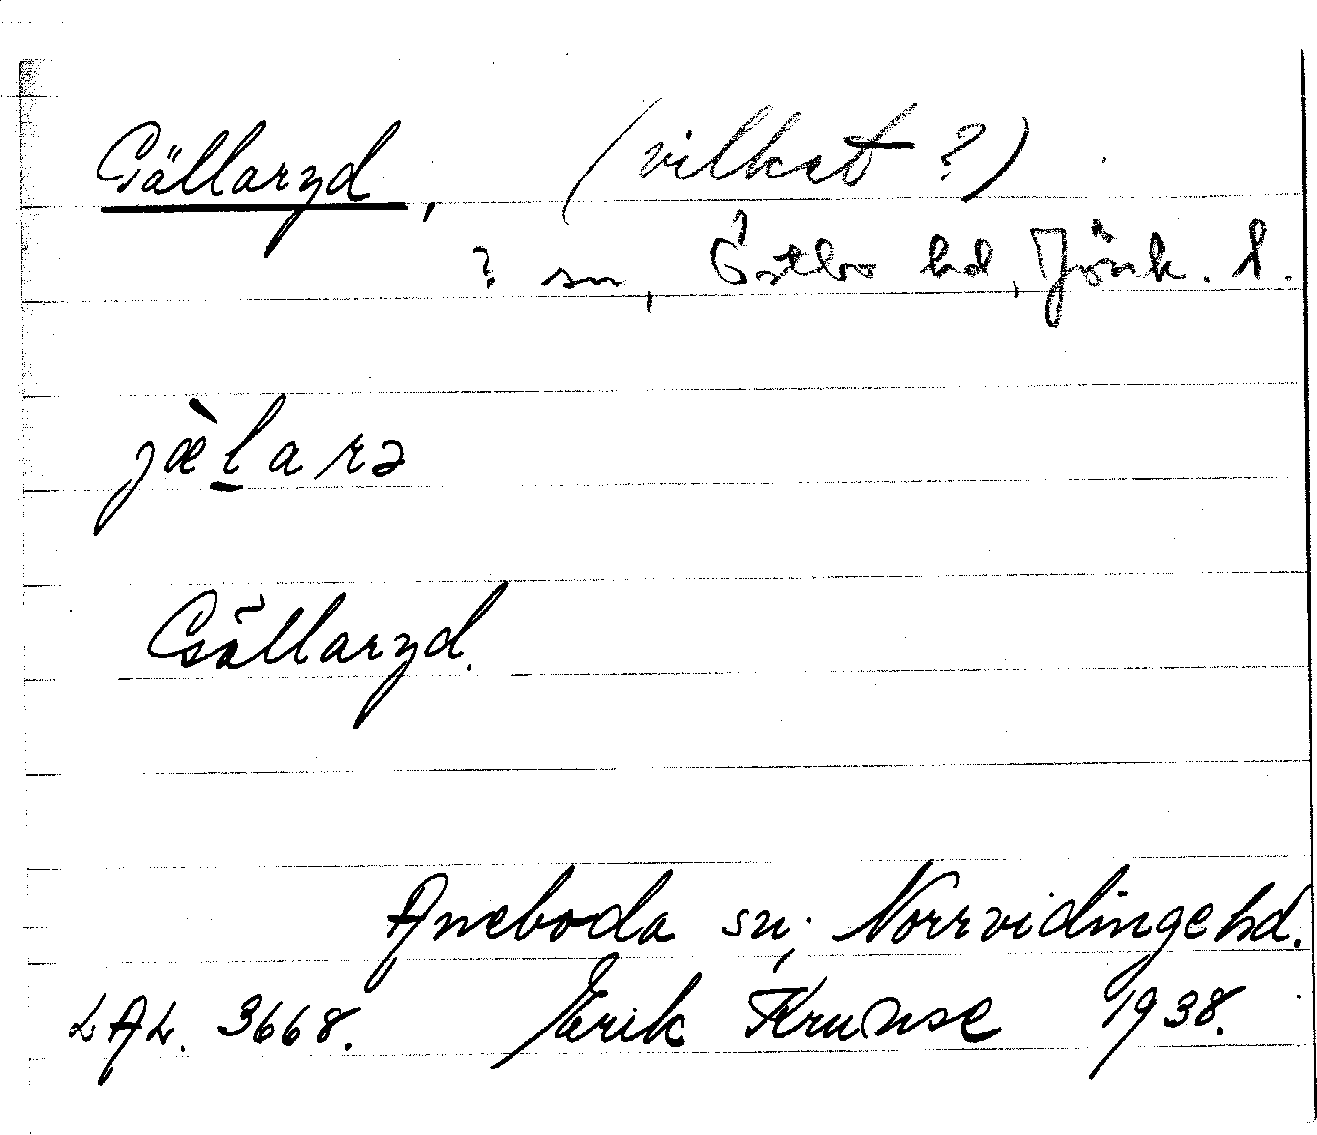 Gällaryd, (vilket ?)
? sn, Östbo hd, Jönk. l.
jæ̀l̲arə
Gällaryd.
Aneboda sn, Norrvidinge hd.
LAL. 3668. Erik Kruuse 1938.